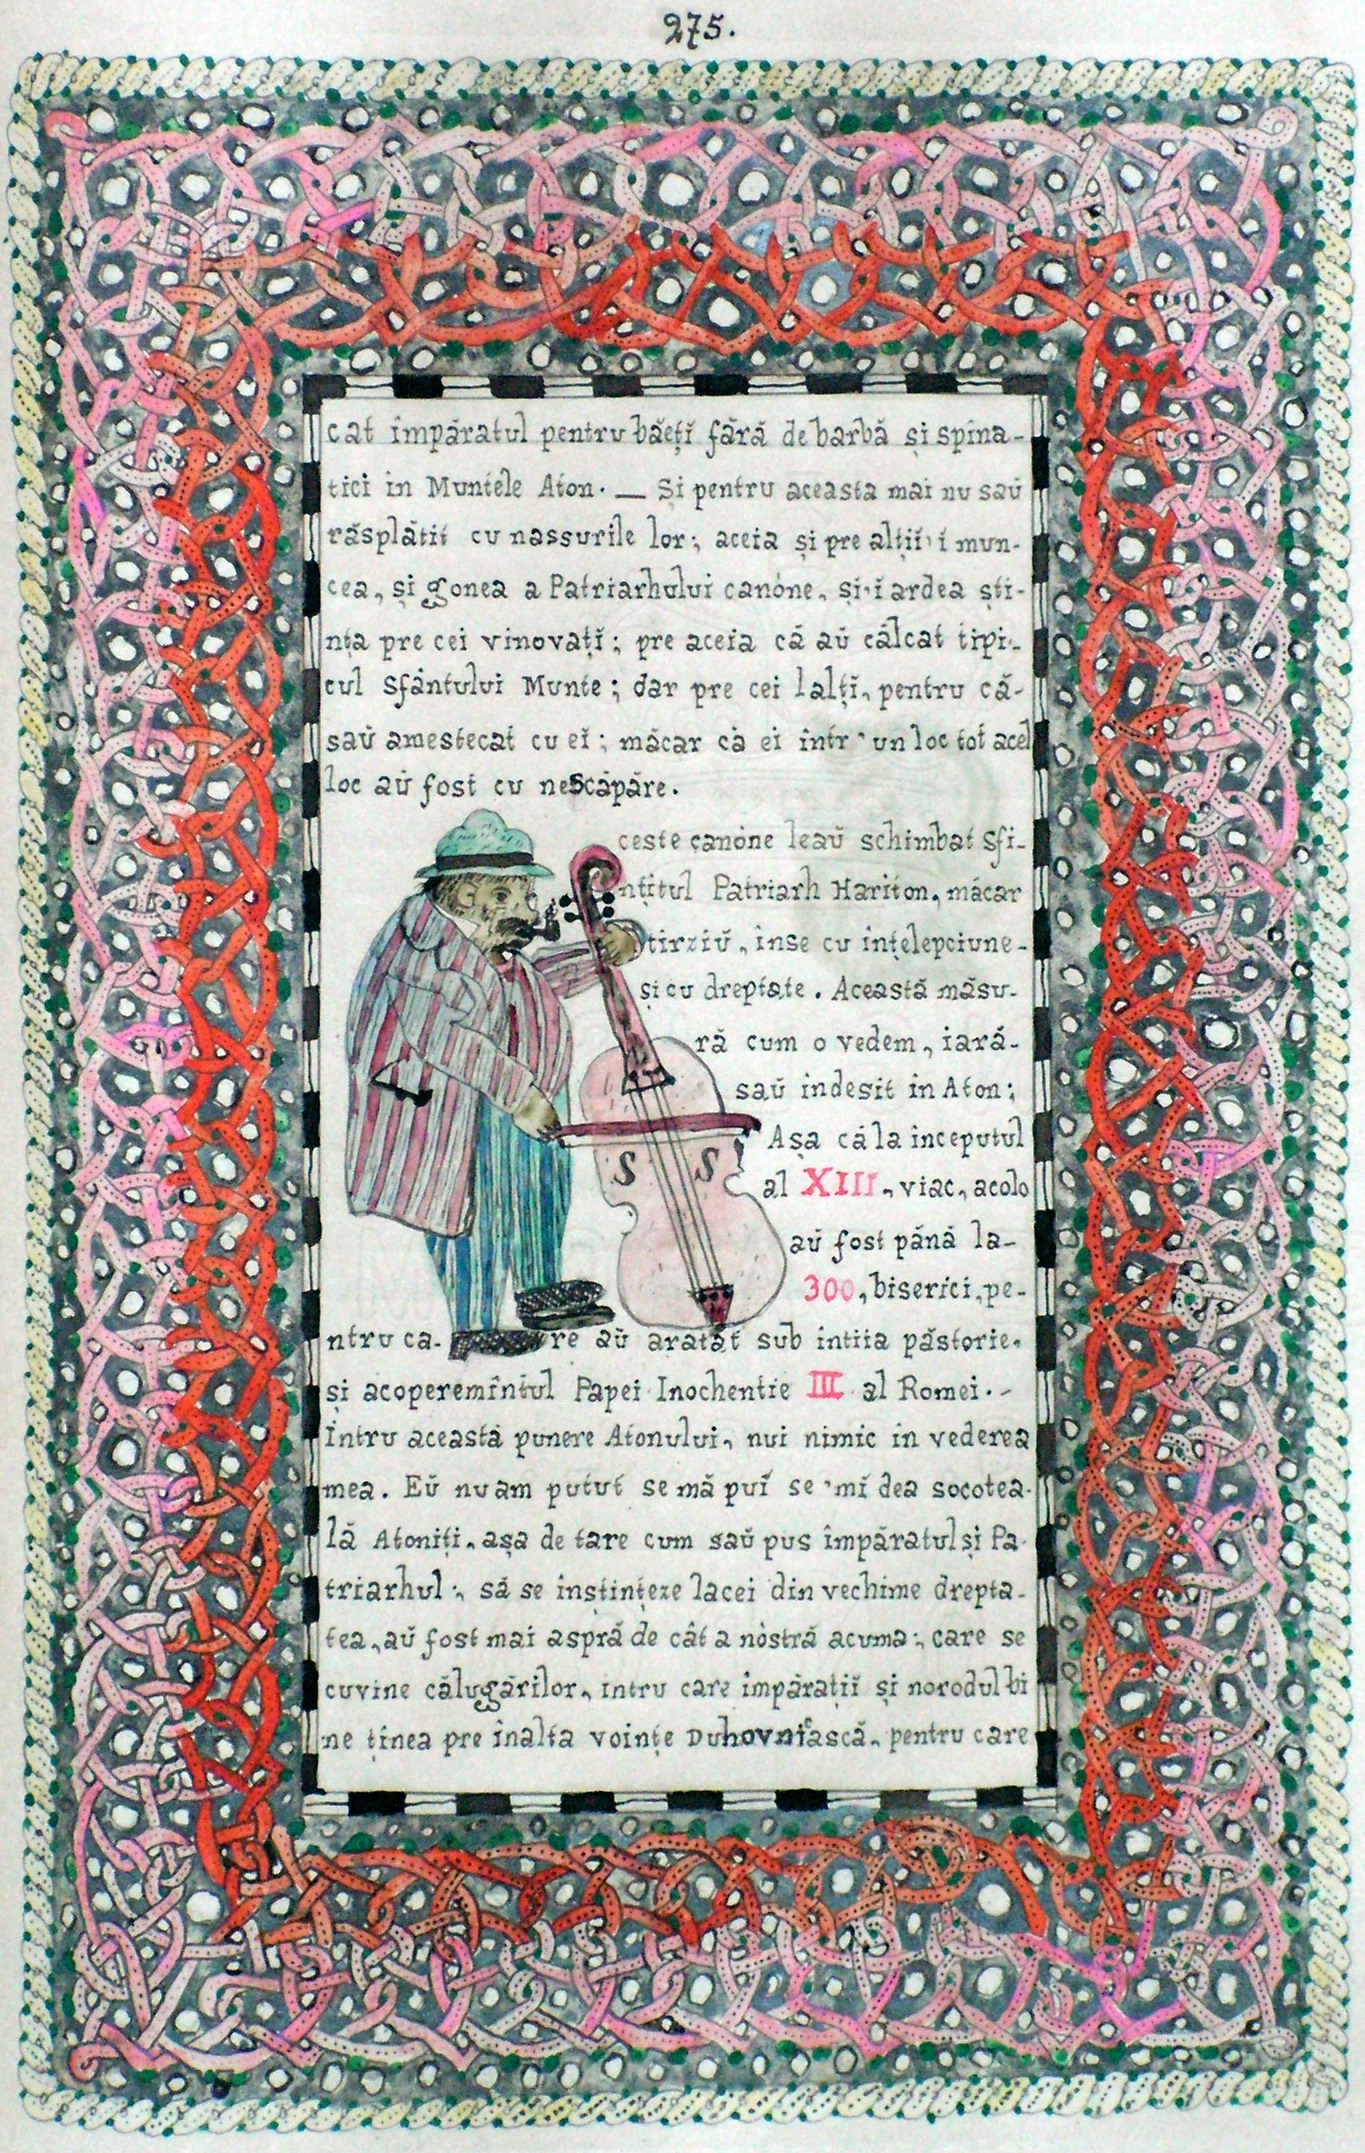 275.
cat împăratul pentru băețĭ fără de barbă și spina-
tici in Muntele Aton. — Și pentru aceasta mai nu saŭ
răsplătit cu nassurile lor; aceia și pre alțiĭ i mun-
cea, și gonea a Patriarhului canóne, și i ardea ști-
nța pre cei vinovațĭ; pre aceia că aŭ călcat tipi-
cul Sfântului Munte; dar pre cei lalțĭ, pentru că-
saŭ amestecat cu eĭ; măcar că ei intr'un loc tot acel
loc aŭ fost cu nescăpăre.
ceste canóne leaŭ schimbat Sfi-
ntitul Patriarh Hariton, măcar
tirziŭ, inse cu ințelepciune-
și cu dreptate. Această măsu-
ră cum o vedem, iară-
saŭ indesit in Aton;
Așa că la inceputul
al XIII, viac, acolo
aŭ fost până la-
300, biserici, pe-
ntru ca-re aŭ aratat sub intiia păstorie,
și acoperemîntul Papei Inochentie III al Romei.-
Intru această punere Atonului, nui nimic in vederea
mea. Eŭ nu am putut se mă puĭ se 'mi dea socotea-
lă Atoniți, așa de tare cum saŭ pus împăratul și Pa-
triarhul; să se inștințeze la cei din vechime drepta-
tea, aŭ fost mai aspră de cât a nóstră acuma; care se
cuvine călugărilor, intru care impărațiĭ și norodul bi
ne ținea pre inalta voințe Duhovnicască, pentru care